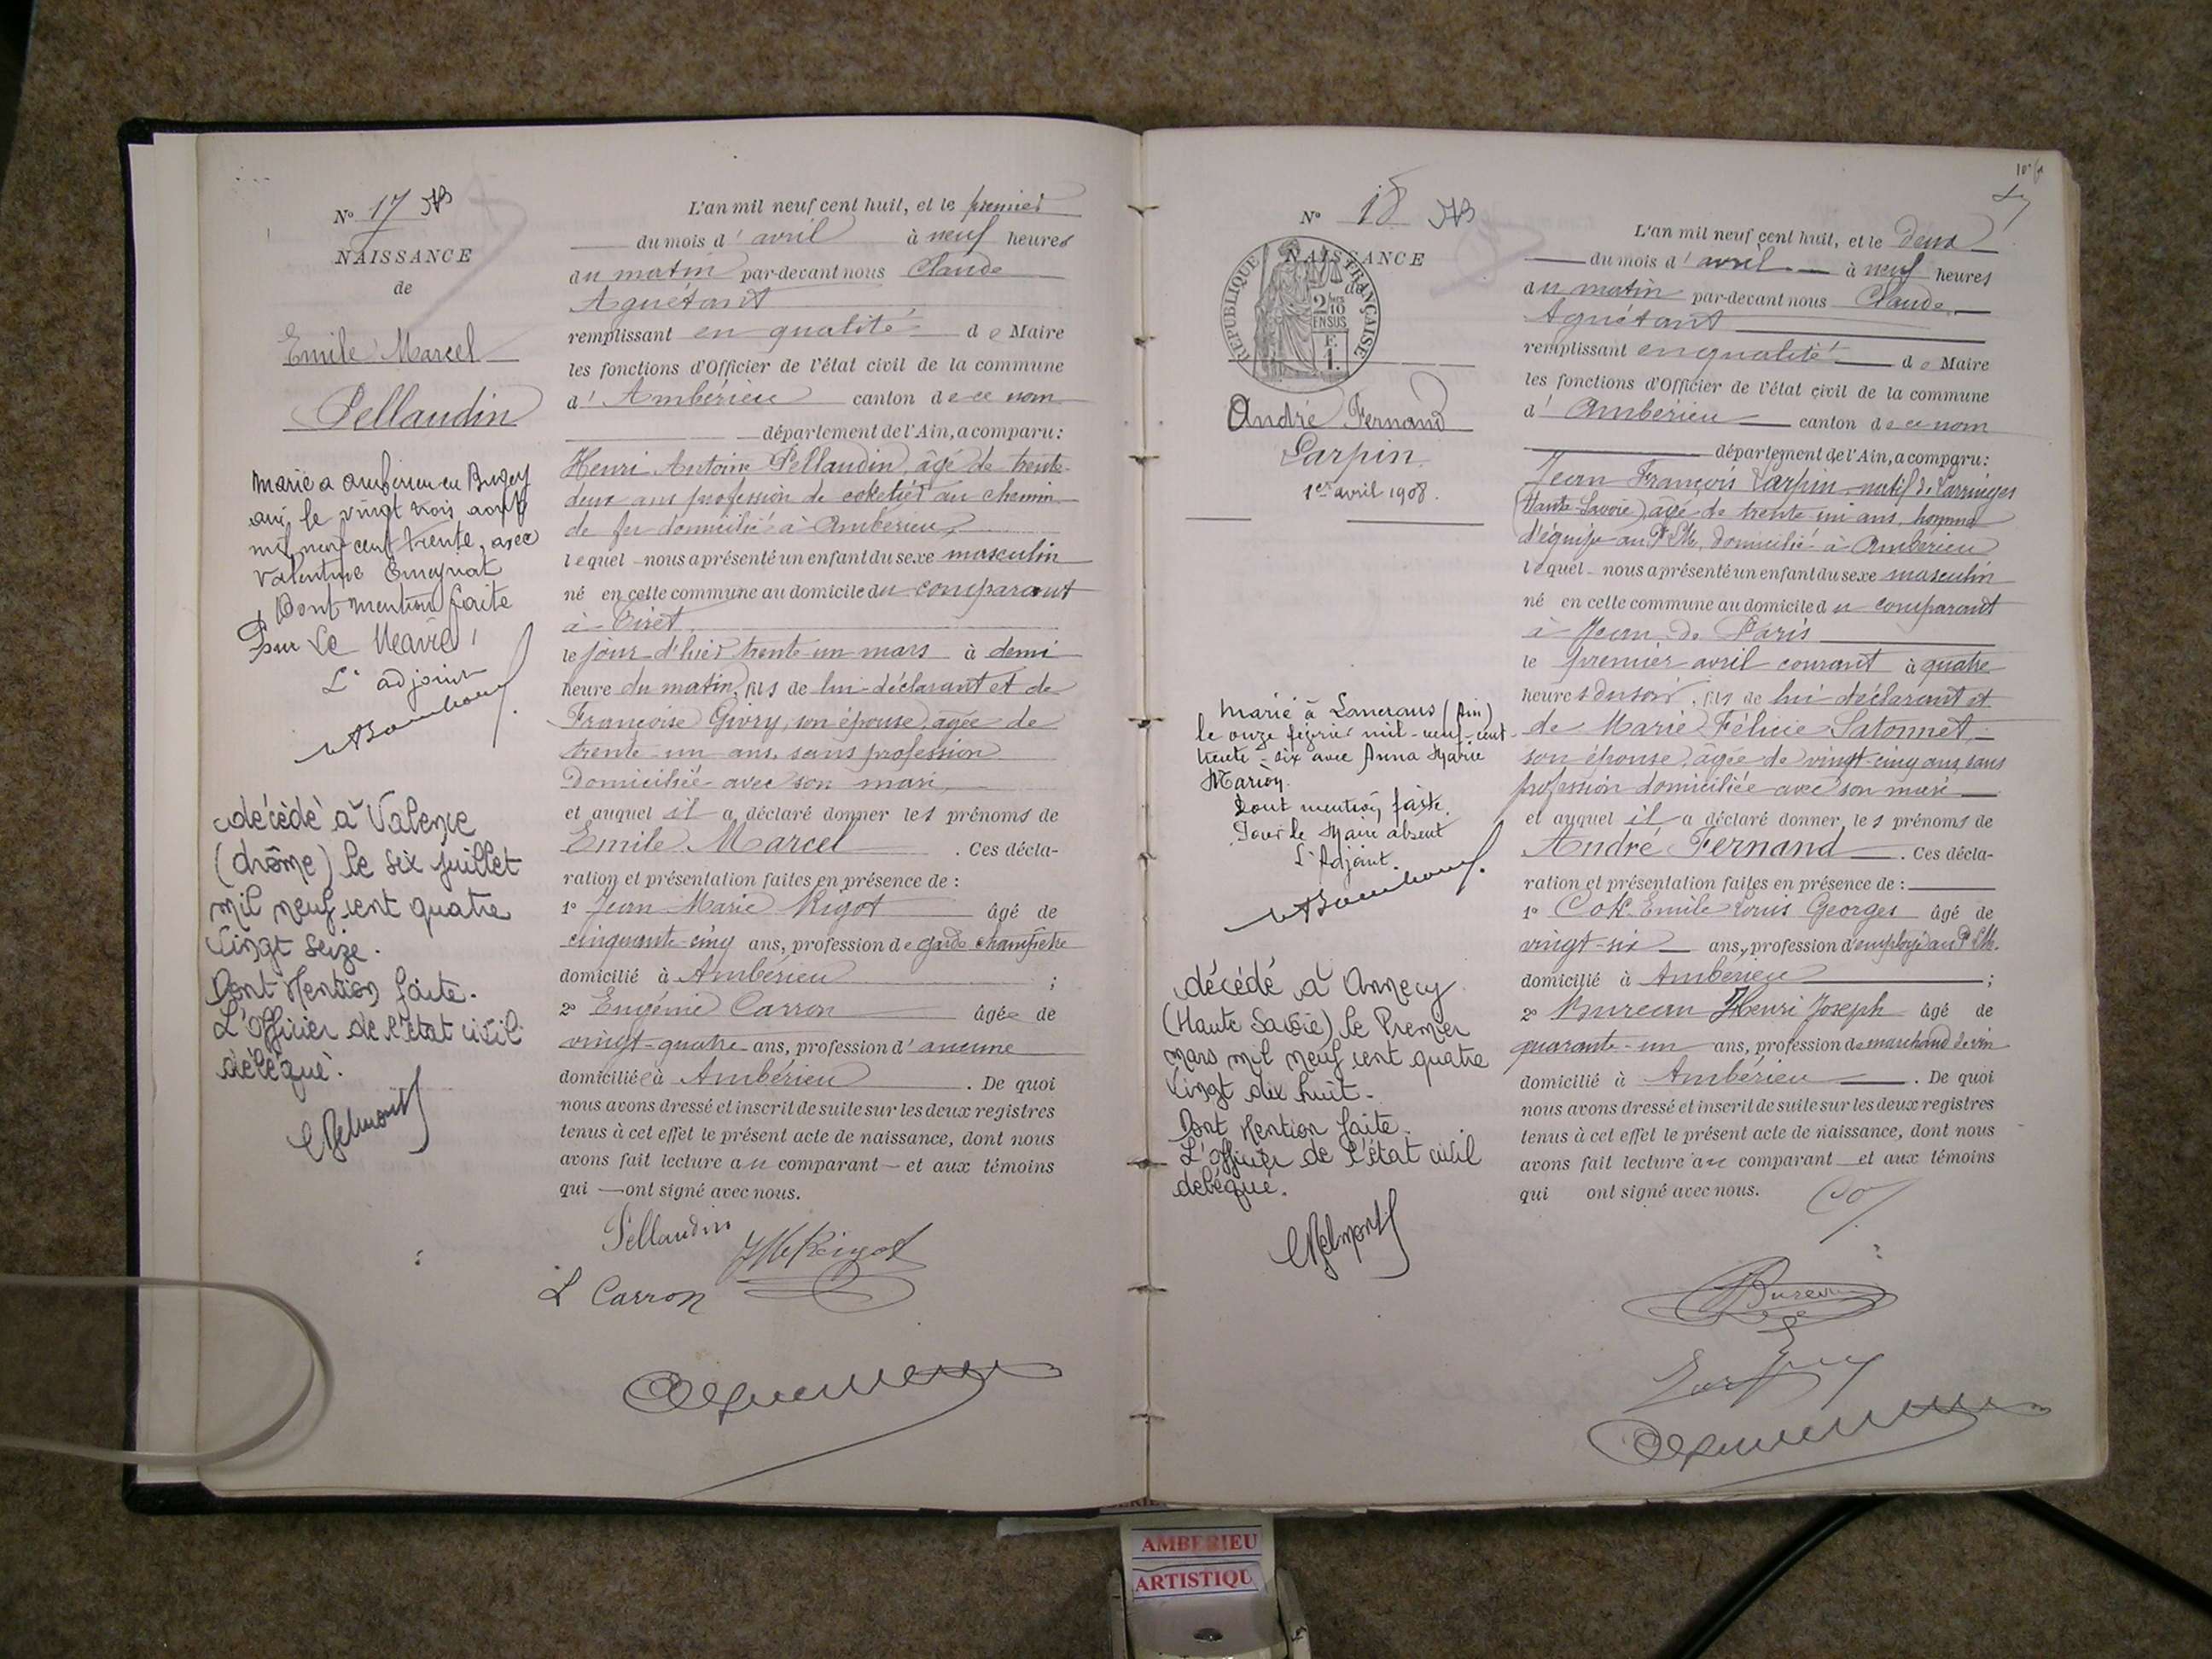 N° 17
NAISSANCE
de
Emile Marcel
Pellaudin
marié a Ambérieu en Bugey
le vingt trois août
mil neuf cent trente, avec
Valentine
Dont mention faite
Pour Le Maire,
L'adjoint
décédé à Valence
(drôme) le six juillet
mil neuf cent quatre
vingt seize.
Dont Mention faite.
L'officier de l'état civil
délégué.
L'an mil neuf cent huit, et le premier
du mois d'avril à neuf heures
du matin par-devant nous Claude
Aguétant
remplissant en qualité de Maire
les fonctions d'Officier de l'état civil de la commune
d'Ambérieu canton de ce nom
département de l'Ain, a comparu:
Henri Antoine Pellaudin, âgé de trente-
deux ans profession de coketier au chemin
de fer domicilié à Ambérieu,
lequel nous a présenté un enfant du sexe masculin
né en cette commune au domicile du comparant
à Tiret
le jour d'hier trente-un mars à demi
heure du matin, fils de lui-déclarant et de
Françoise Givry, son épouse, âgée de
trente-un ans, sans profession
domiciliée avec son mari,
et auquel il a déclaré donner les prénoms de
Emile Marcel. Ces décla-
ration et présentation faites en présence de :
1° Jean Marie Rigot âgé de
cinquante-cinq ans, profession de garde champêtre
domicilié à Ambérieu ;
2° Eugénie Carron âgée de
vingt-quatre ans, profession d'aucune
domiciliée à Ambérieu. De quoi
nous avons dressé et inscrit de suite sur les deux registres
tenus à cet effet le présent acte de naissance, dont nous
avons fait lecture au comparant et aux témoins
qui ont signé avec nous.
Pellaudin
JM Rigot
Carron
N° 18
NAISSANCE
de
RÉPUBLIQUE FRANÇAISE
2/10
EN SUS
F.
1.
André Fernand
Larpin
1er avril 1908.
marié à Lancrans (Ain)
le onze février mil-neuf-cent
trente-six avec Anna Marie
Marion.
Dont mention faite.
Pour le Maire absent
L'Adjoint.
décédé à Annecy
(Haute Savoie) le Premier
mars mil neuf cent quatre
vingt dix huit.
Dont Mention faite.
L'officier de l'état civil
délégué.
L'an mil neuf cent huit, et le deux
du mois d'avril à neuf heures
du matin par-devant nous Claude
Aguétant
remplissant en qualité de Maire
les fonctions d'Officier de l'état civil de la commune
d'Ambérieu canton de ce nom
département de l'Ain, a comparu:
Jean François Larpin natif de Larringes
(Haute-Savoie), âgé de trente un ans, homme
d'équipe au P.L.M. domicilié à Ambérieu
lequel nous a présenté un enfant du sexe masculin
né en cette commune au domicile du comparant
à Jean de Paris
le premier avril courant à quatre
heures du soir, fils de lui déclarant et
de Marie Félicie Satonnet,
son épouse, âgée de vingt-cinq ans, sans
profession domiciliée avec son mari
et auquel il a déclaré donner les prénoms de
André Fernand. Ces décla-
ration et présentation faites en présence de :
1° Emile Louis Georges âgé de
vingt-six ans, profession d'employé au P.L.M.
domicilié à Ambérieu ;
2° Bureau Henri Joseph âgé de
quarante-un ans, profession de marchand de vin
domicilié à Ambérieu. De quoi
nous avons dressé et inscrit de suite sur les deux registres
tenus à cet effet le présent acte de naissance, dont nous
avons fait lecture au comparant et aux témoins
qui ont signé avec nous.
Bureau
Larpin
AMBERIEU
ARTISTIQU